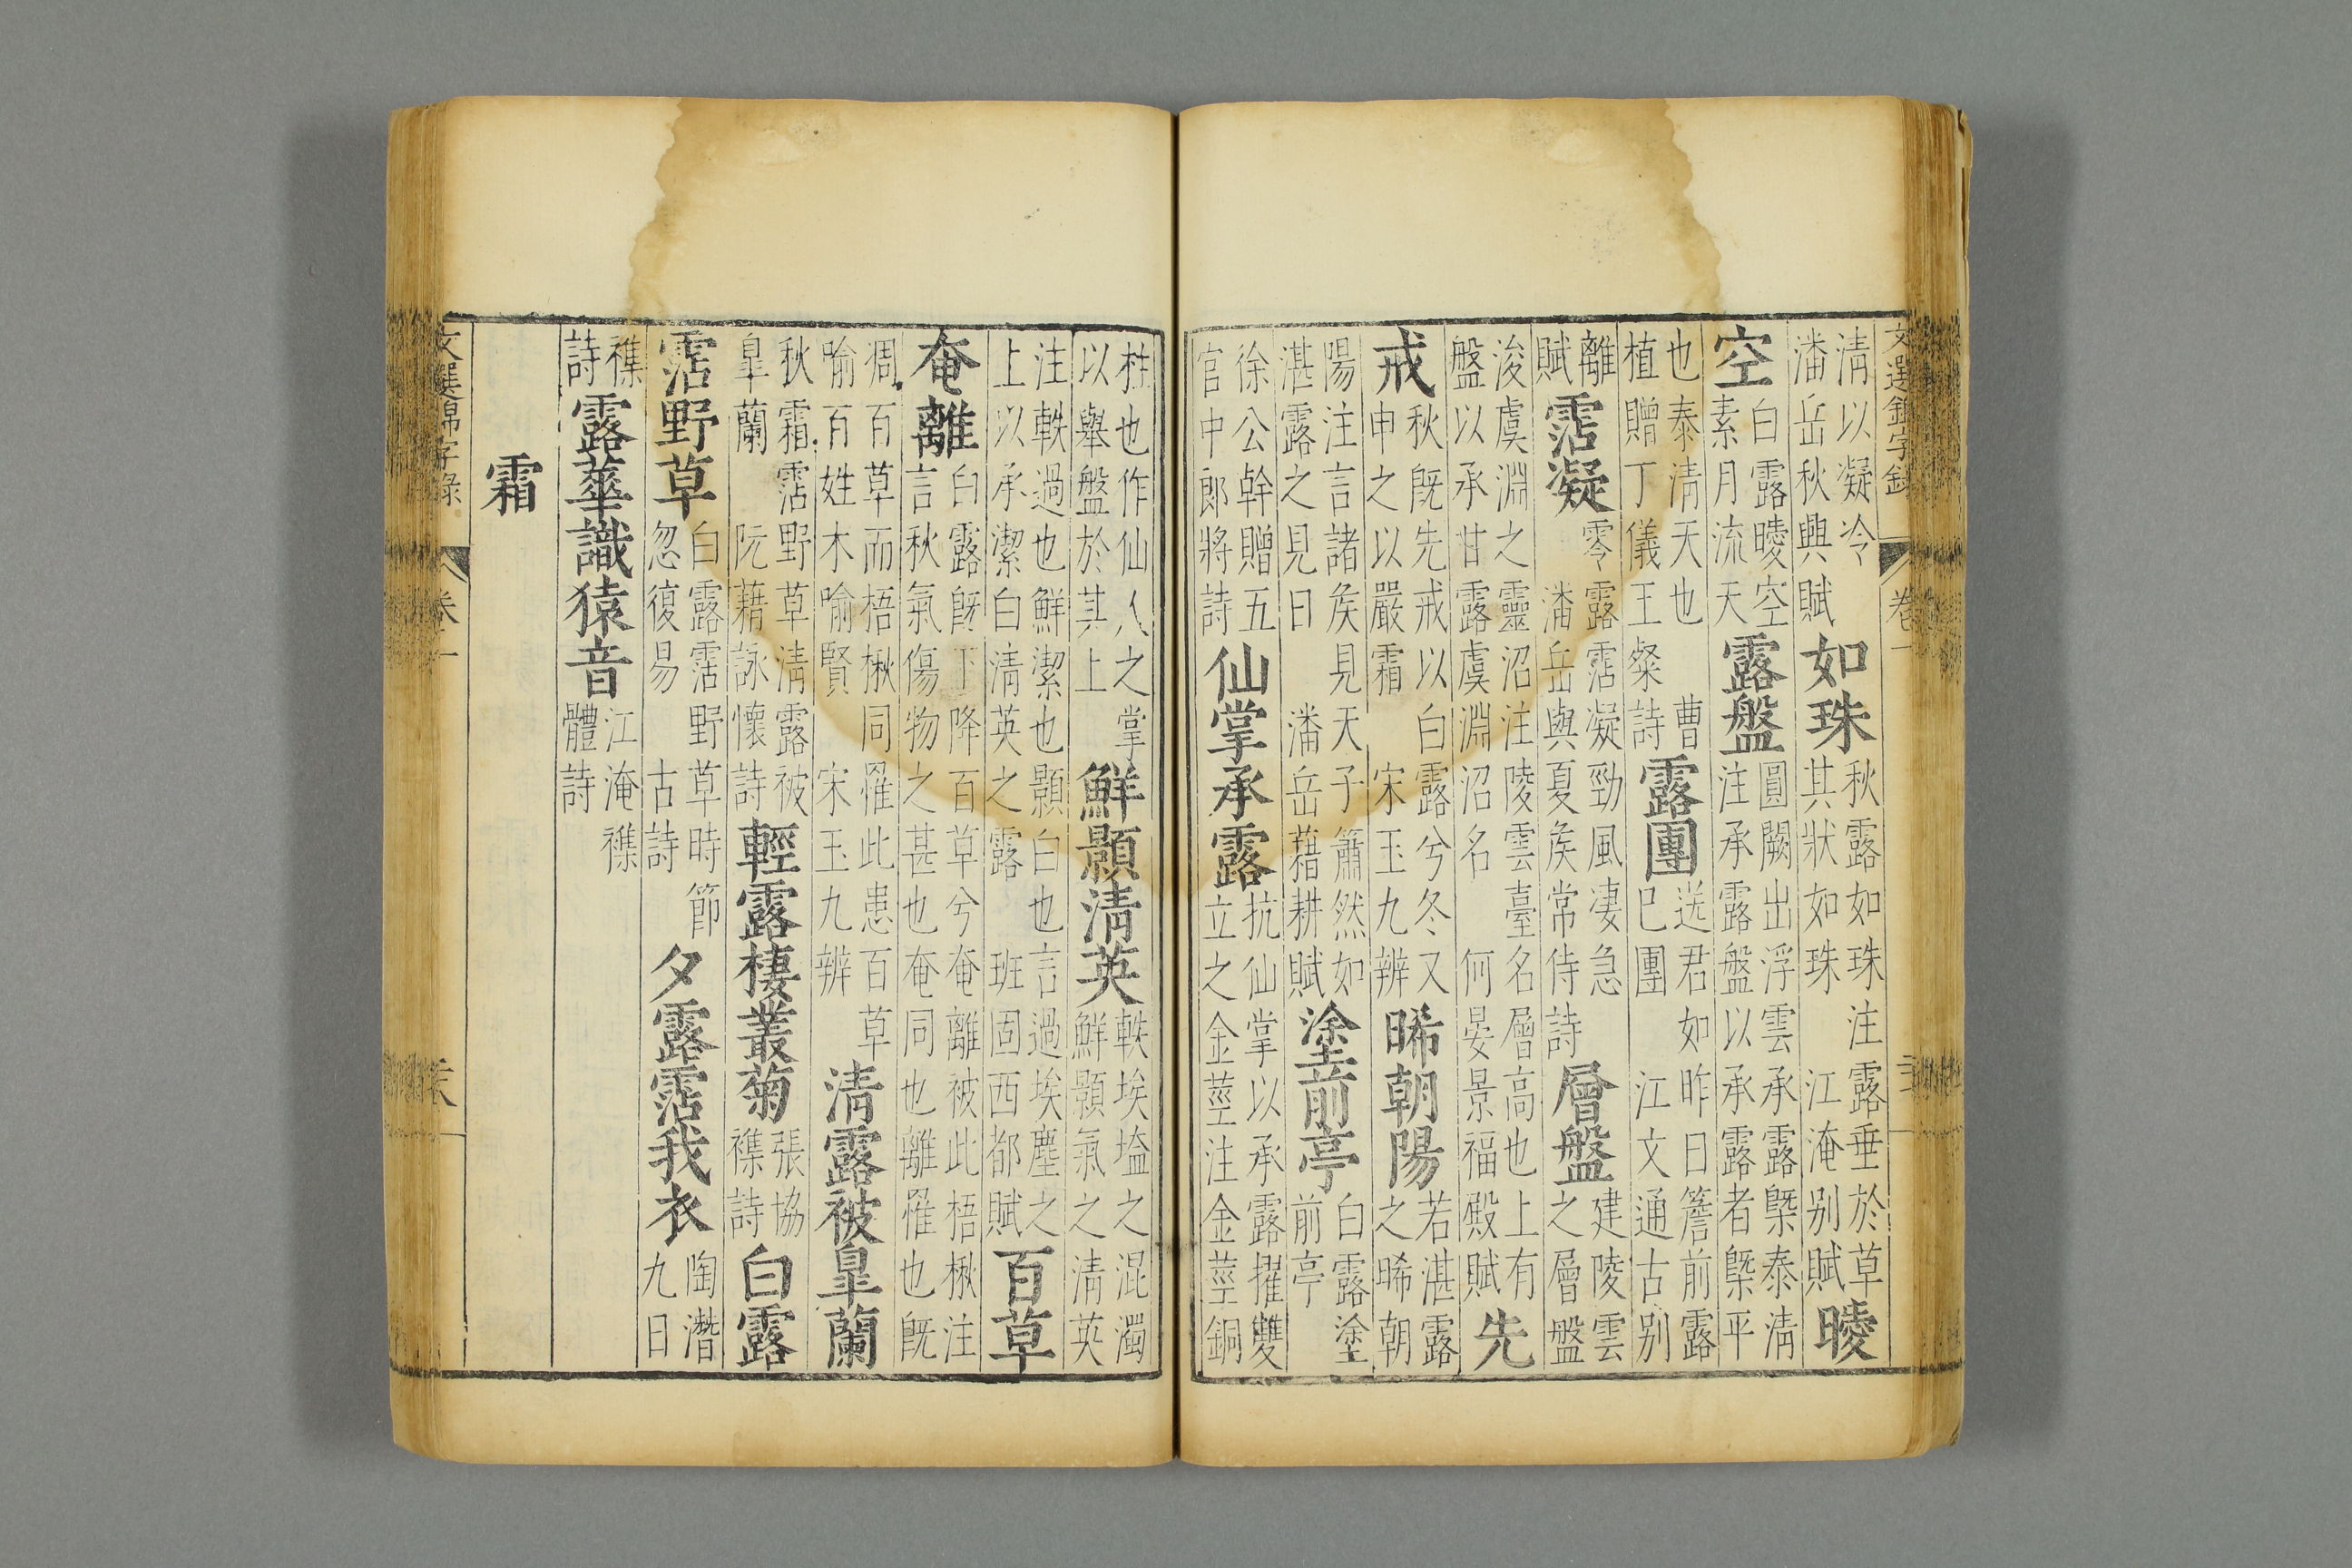 文選錦字錄 卷一 三
清以凝冷潘岳秋興賦 如珠 秋露如珠注露垂於草其狀如珠 江淹别賦 曖
空 白露曖空素月流天 露盤 圓闕出浮雲承露槩泰清注承露盤以承露者槩平
也泰清天也 曹植贈丁儀王粲詩 露團 送君如昨日簷前露已團 江文通古别
離賦 霑凝 零露霑凝勁風凄急 潘岳與夏矦常侍詩 層盤 建陵雲之層盤
浚虞淵之靈沼注陵雲臺名層高也上有盤以承甘露虞淵沼名 何晏景福殿賦 先
戒 秋旣先戒以白露兮冬又申之以嚴霜 宋玉九辨 晞朝陽 若湛露之晞朝
陽注言諸矦見天子肅然如湛露之見日 潘岳藉耕賦 塗前亭 白露塗前亭
徐公幹贈五官中郎將詩 仙掌承露 抗仙掌以承露擢雙立之金莖注金莖銅
柱也作仙人之掌以舉盤於其上 鮮顥清英 軼埃壒之混濁鮮顥氣之清英
注軼過也鮮潔也顥白也言過埃塵之上以承潔白清英之露 班固西都賦 百草
奄離 白露旣下降百草兮奄離被此梧楸注言秋氣傷物之甚也奄同也離罹也旣
凋百草而梧楸同罹此患百草喻百姓木喻賢 宋玉九辨 清露被皐蘭
秋霜霑野草清露被皐蘭 阮藉詠懷詩 輕露棲叢菊 張協襍詩 白露
霑野草 白露霑野草時節忽復易 古詩 夕露霑我衣 陶潛九日
襍詩 露華識猿音 江淹襍體詩
霜
文選錦字錄 卷一